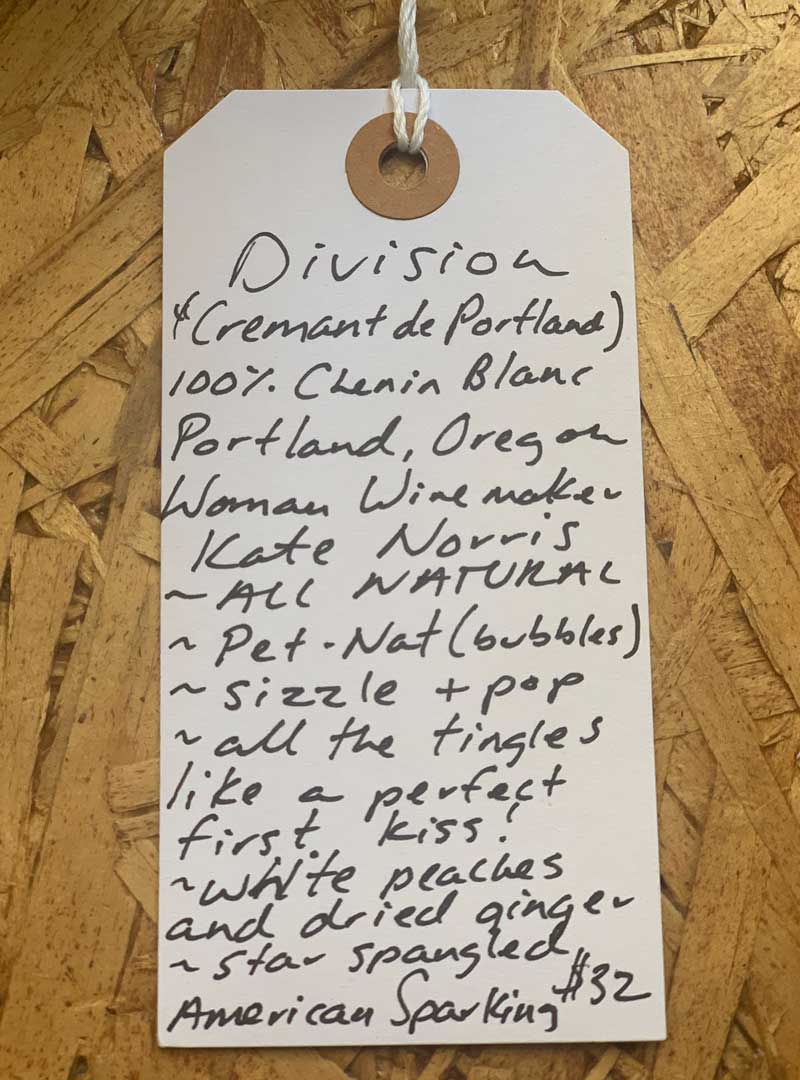 Division
"(Cremant de Portland)
100% Chenin Blanc
Portland, Oregon
Woman Winemaker
Kate Norris
~ ALL NATURAL
~ Pet-Nat (bubbles)
~ sizzle + pop
~ all the tingles
like a perfect
first kiss!
~ white peaches
and dried ginger
~ star spangled
American Sparking $32